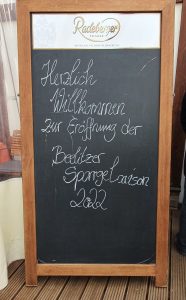 Radeberger
PILSNER
Herzlich
Willkommen
zur Eröffnung der
Beelitzer
Spargelsaison
2022